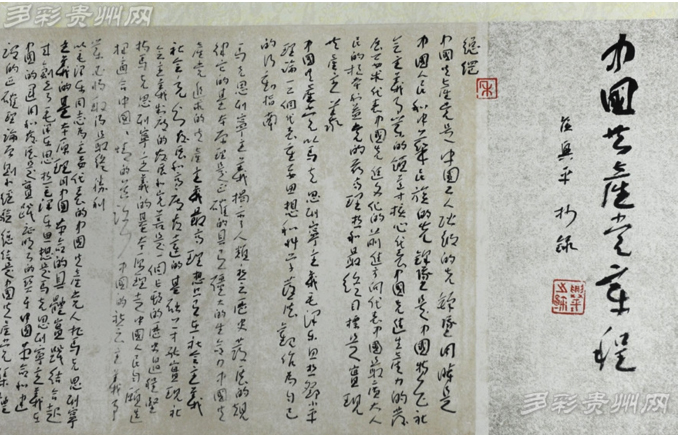 多彩贵州网
中国共产党章程
兴平抄录
总纲
中国共产党是中国工人阶级的先锋队同时是
中国人民和中华民族的先锋队是中国特色社
会主义事业的领导核心代表中国先进生产力的发
展要求代表中国先进文化的前进方向代表中国最广大人
民的根本利益党的最高理想和最终目标是实现
共产主义
中国共产党以马克思列宁主义毛泽东思想邓小平
理论三个代表重要思想和科学发展观作为自己
的行动指南
马克思列宁主义揭示了人类社会历史发展的规
律它的基本原理是正确的具有强大的生命力中国共
产党人追求的共产主义最高理想只有在社会主义
社会充分发展和高度发达的基础上才能实现社
会主义制度的发展和完善是一个长期的历史过程坚
持马克思列宁主义的基本原理走中国人民自愿选
择的适合中国国情的道路中国的社会主义事
业必将取得最终的胜利
以毛泽东同志为主要代表的中国共产党人把马克思列宁
主义的基本原理同中国革命的具体实践结合起
来创立了毛泽东思想毛泽东思想是马克思列宁主义在
中国的运用和发展是被实践证明了的关于中国革命和建
设的正确的理论原则和经验总结是中国共产党集体
多彩贵州网